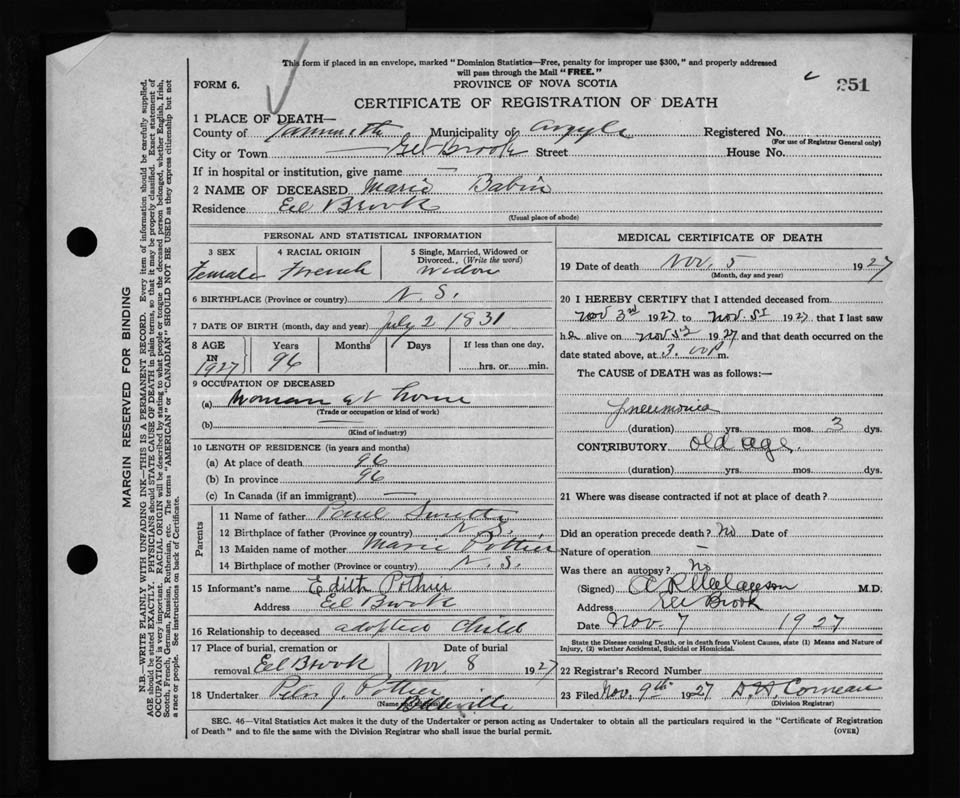 This form if placed in an envelope, marked "Dominion Statistics—Free, penalty for improper use $300," and properly addressed
will pass through the Mail "FREE."
FORM 6.
PROVINCE OF NOVA SCOTIA
251
CERTIFICATE OF REGISTRATION OF DEATH
1 PLACE OF DEATH—
County of Yarmouth Municipality of Argyle Registered No.
(For use of Registrar General only)
City or Town Eel Brook Street House No.
If in hospital or institution, give name —
2 NAME OF DECEASED Marie Babin
Residence Eel Brook
(Usual place of abode)
PERSONAL AND STATISTICAL INFORMATION
3 SEX 4 RACIAL ORIGIN 5 Single, Married, Widowed or
Divorced. (Write the word)
Female French Widow
6 BIRTHPLACE (Province or country) N.S.
7 DATE OF BIRTH (month, day and year) July 2 1831
8 AGE IN 1927 Years Months Days If less than one day,
96 hrs. or min.
9 OCCUPATION OF DECEASED
(a) Woman at home
(Trade or occupation or kind of work)
(b) —
(Kind of industry)
10 LENGTH OF RESIDENCE (in years and months)
(a) At place of death 96
(b) In province 96
(c) In Canada (if an immigrant) —
Parents
11 Name of father Paul Surette
12 Birthplace of father (Province or country) N.S.
13 Maiden name of mother Marie Pottier
14 Birthplace of mother (Province or country) N.S.
15 Informant's name Edith Pothier
Address Eel Brook
16 Relationship to deceased adopted child
17 Place of burial, cremation or Date of burial
removal Eel Brook Nov. 8 1927
18 Undertaker Peter J. Pottier
(Name and address)
Belleville
MEDICAL CERTIFICATE OF DEATH
19 Date of death Nov. 5 1927
(Month, day and year)
20 I HEREBY CERTIFY that I attended deceased from
Nov 3rd 1927 to Nov. 5 1927 that I last saw
h alive on Nov 5 1927 and that death occurred on the
date stated above, at 3.00 P m.
The CAUSE of DEATH was as follows:—
Pneumonia
(duration) yrs. mos. 3 dys.
CONTRIBUTORY old age.
(duration) yrs. mos. dys.
21 Where was disease contracted if not at place of death?
Did an operation precede death? No Date of
Nature of operation —
Was there an autopsy? No
(Signed) A R Melanson M.D.
Address Eel Brook
Date Nov. 7 1927
State the Disease causing Death, or in death from Violent Causes, state (1) Means and Nature of
Injury, (2) whether Accidental, Suicidal or Homicidal.
22 Registrar's Record Number
23 Filed Nov. 9th 1927 Comeau
(Division Registrar)
SEC. 46—Vital Statistics Act makes it the duty of the Undertaker or person acting as Undertaker to obtain all the particulars required in the "Certificate of Registration
of Death" and to file the same with the Division Registrar who shall issue the burial permit. (OVER)
MARGIN RESERVED FOR BINDING
N.B.—WRITE PLAINLY WITH UNFADING INK—THIS IS A PERMANENT RECORD. Every item of information should be carefully supplied.
AGE should be stated EXACTLY. PHYSICIANS should STATE CAUSE OF DEATH in plain terms, so that it may be properly classified. Exact statement of
OCCUPATION is very important. RACIAL ORIGIN will be described by stating to what people or tongue the deceased person belonged, whether English, Irish,
Scotch, French, German, Russian, Ruthenian, etc. The terms "AMERICAN" or "CANADIAN" SHOULD NOT BE USED as they express citizenship but not
a race or people. See instructions on back of Certificate.